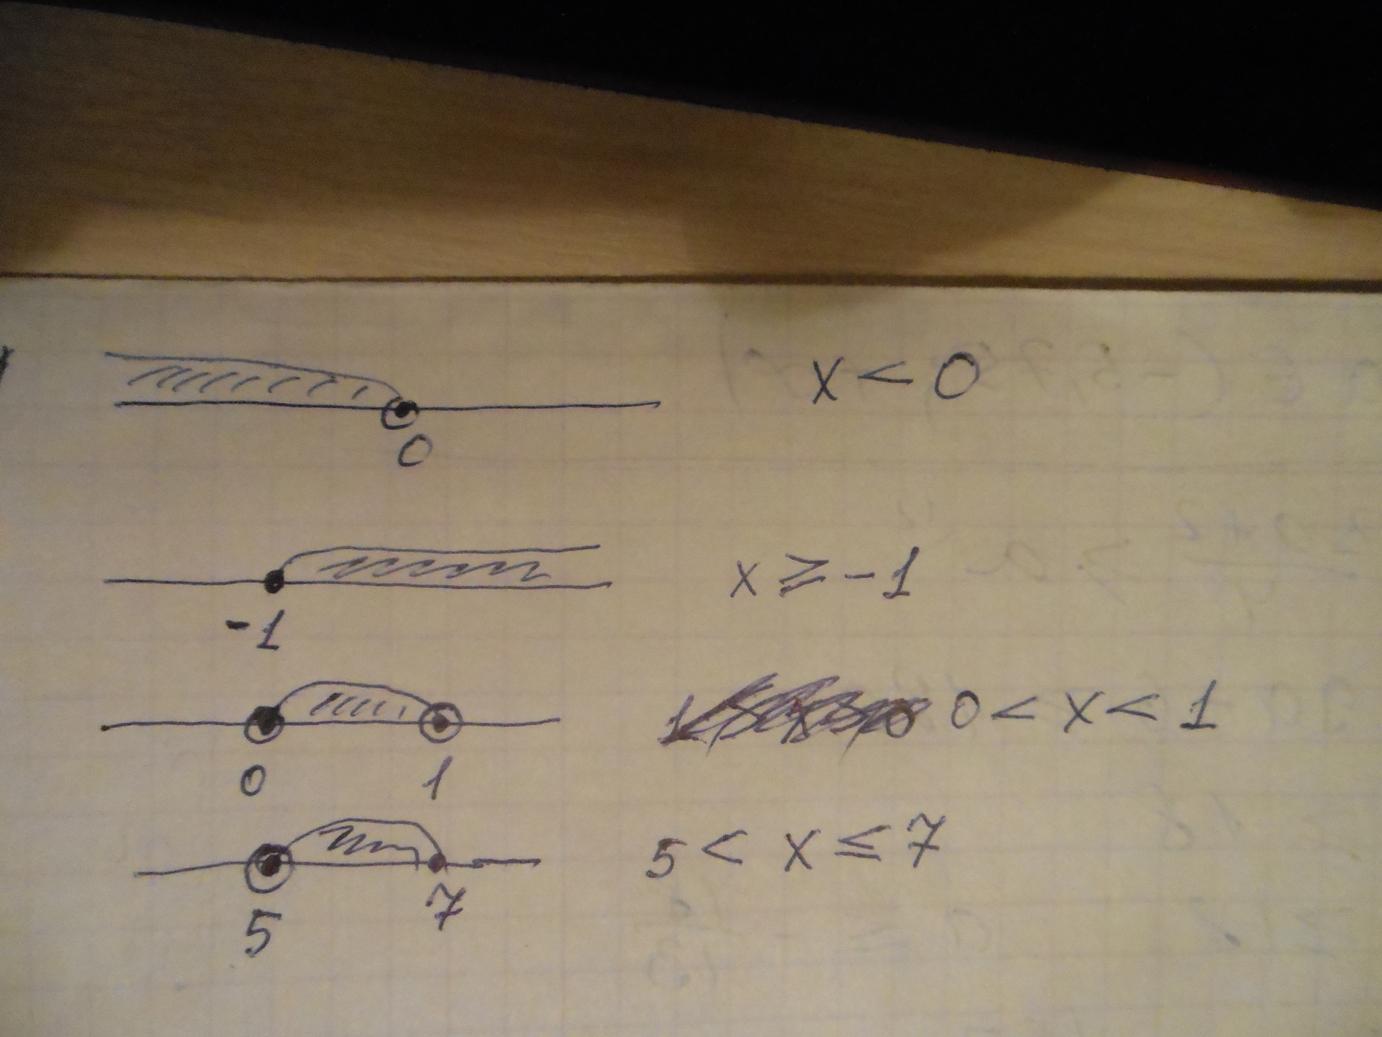 x < 0
0
x ≥ -1
-1
0 < x < 1
0 1
5 < x ≤ 7
5 7